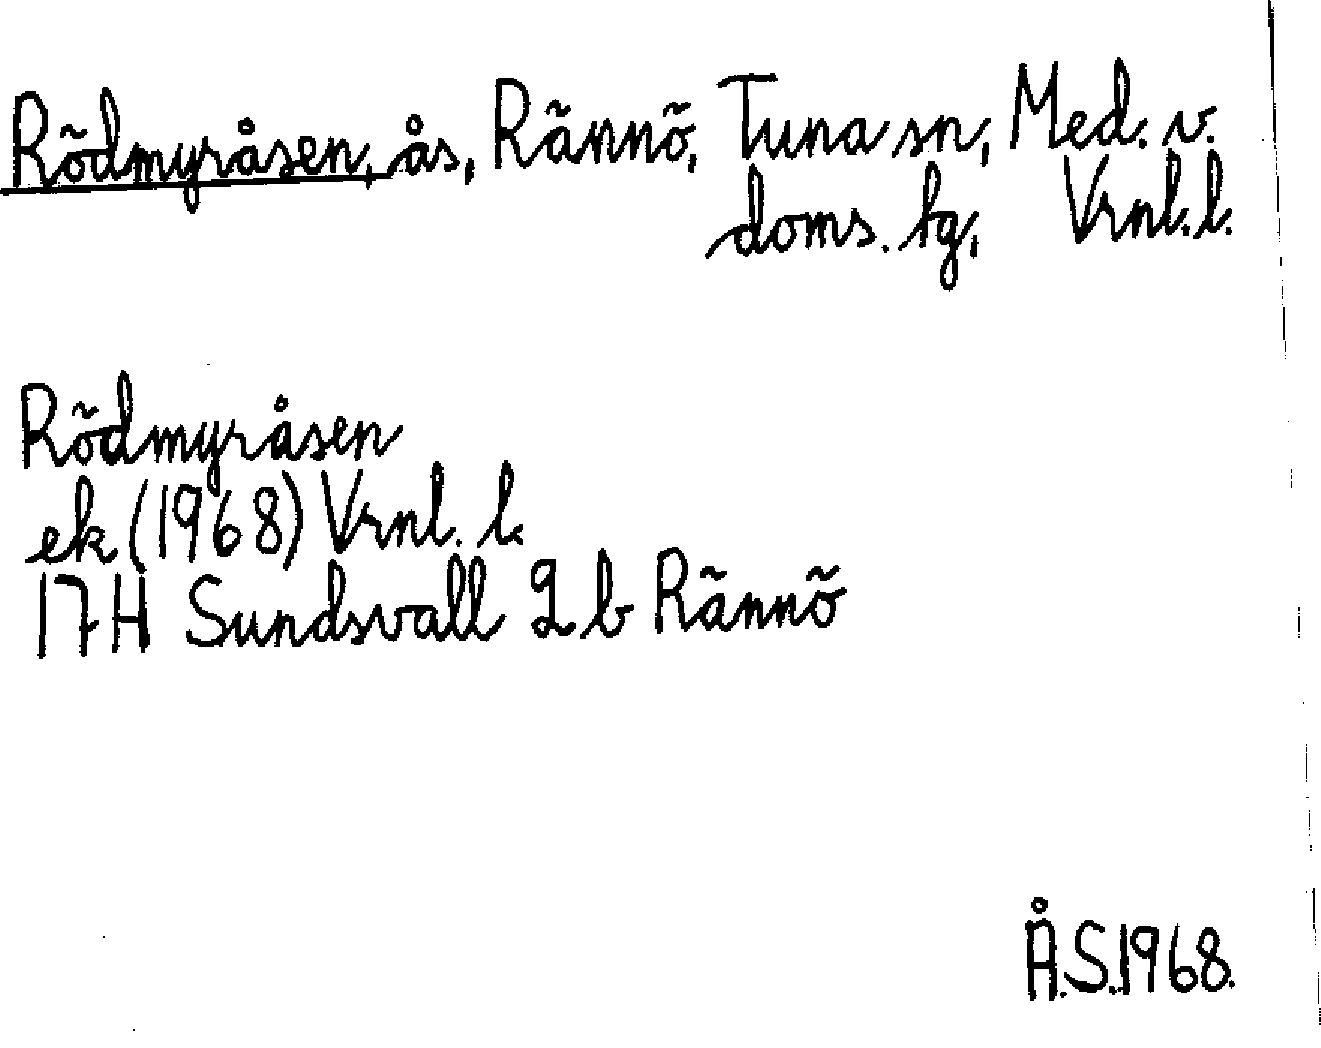 Rödmyråsen, ås, Rännö, Tuna sn, Med. v.
doms. tg, Vrnl. l.
Rödmyråsen
ek (1968) Vrnl. l.
17H Sundsvall 2 b Rännö
Å.S.1968.